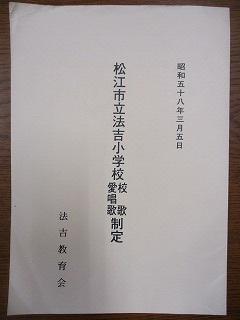 昭和五十八年三月五日
松江市立法吉小学校校歌愛唱歌制定
法吉教育会